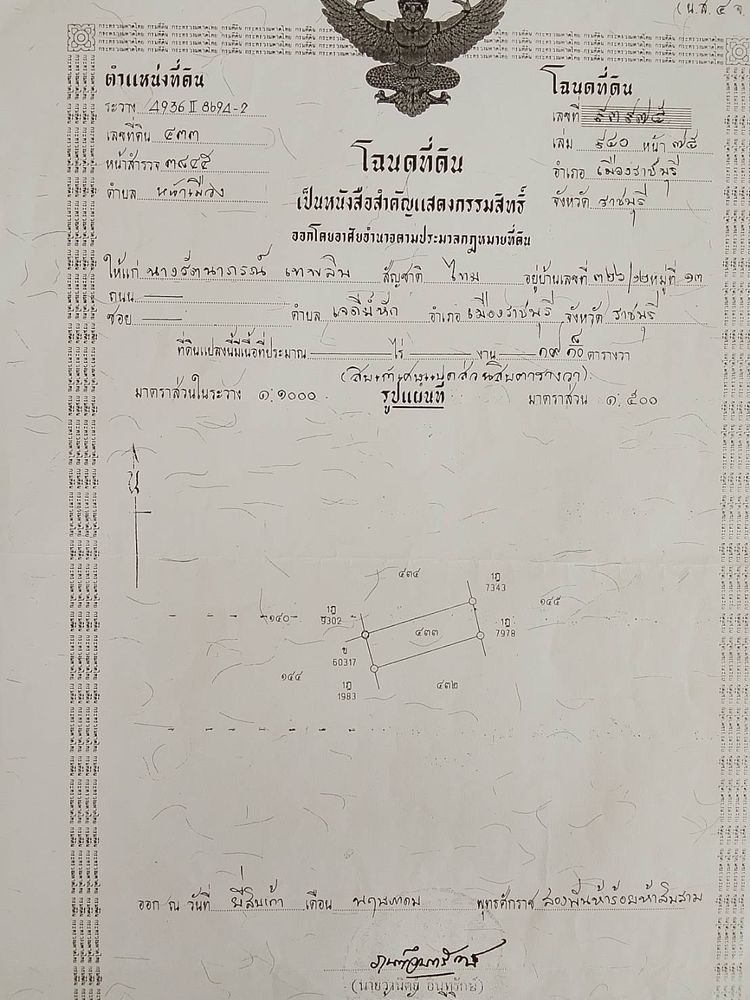 (น.ส. ๔ จ
ตำแหน่งที่ดิน
ระวาง 4936 II 8694-2
เลขที่ดิน ๔๓๓
หน้าสำรวจ ๓๘๔๕
ตำบล หน้าเมือง
โฉนดที่ดิน
เลขที่ ๕๓๙๗๕
เล่ม ๕๔๐ หน้า ๗๕
อำเภอ เมืองราชบุรี
จังหวัด ราชบุรี
โฉนดที่ดิน
เป็นหนังสือสำคัญแสดงกรรมสิทธิ์
ออกโดยอาศัยอำนาจตามประมวลกฎหมายที่ดิน
ให้แก่ นางรัตนาภรณ์ เทพลิบ สัญชาติ ไทย อยู่บ้านเลขที่ ๓๒๖/๑๒ หมู่ที่ ๑๓
ถนน
ซอย ตำบล เจดีย์หัก อำเภอ เมืองราชบุรี จังหวัด ราชบุรี
ที่ดินแปลงนี้มีเนื้อที่ประมาณ ไร่ งาน ๑๙ ๘/๑๐ ตารางวา
(สิบเก้าเศษแปดส่วนสิบตารางวา)
มาตราส่วนในระวาง ๑:๑๐๐๐ รูปแผนที่ มาตราส่วน ๑:๕๐๐
น
๔๓๔
1ฎ
7343
๑๔๕
๑๔๐
1ฎ
9302
๔๓๓
1ฎ
7978
ข
60317
๑๔๔
1ฎ
1983
๔๓๒
ออก ณ วันที่ ยี่สิบเก้า เดือน พฤษภาคม พุทธศักราช สองพันห้าร้อยห้าสิบสาม